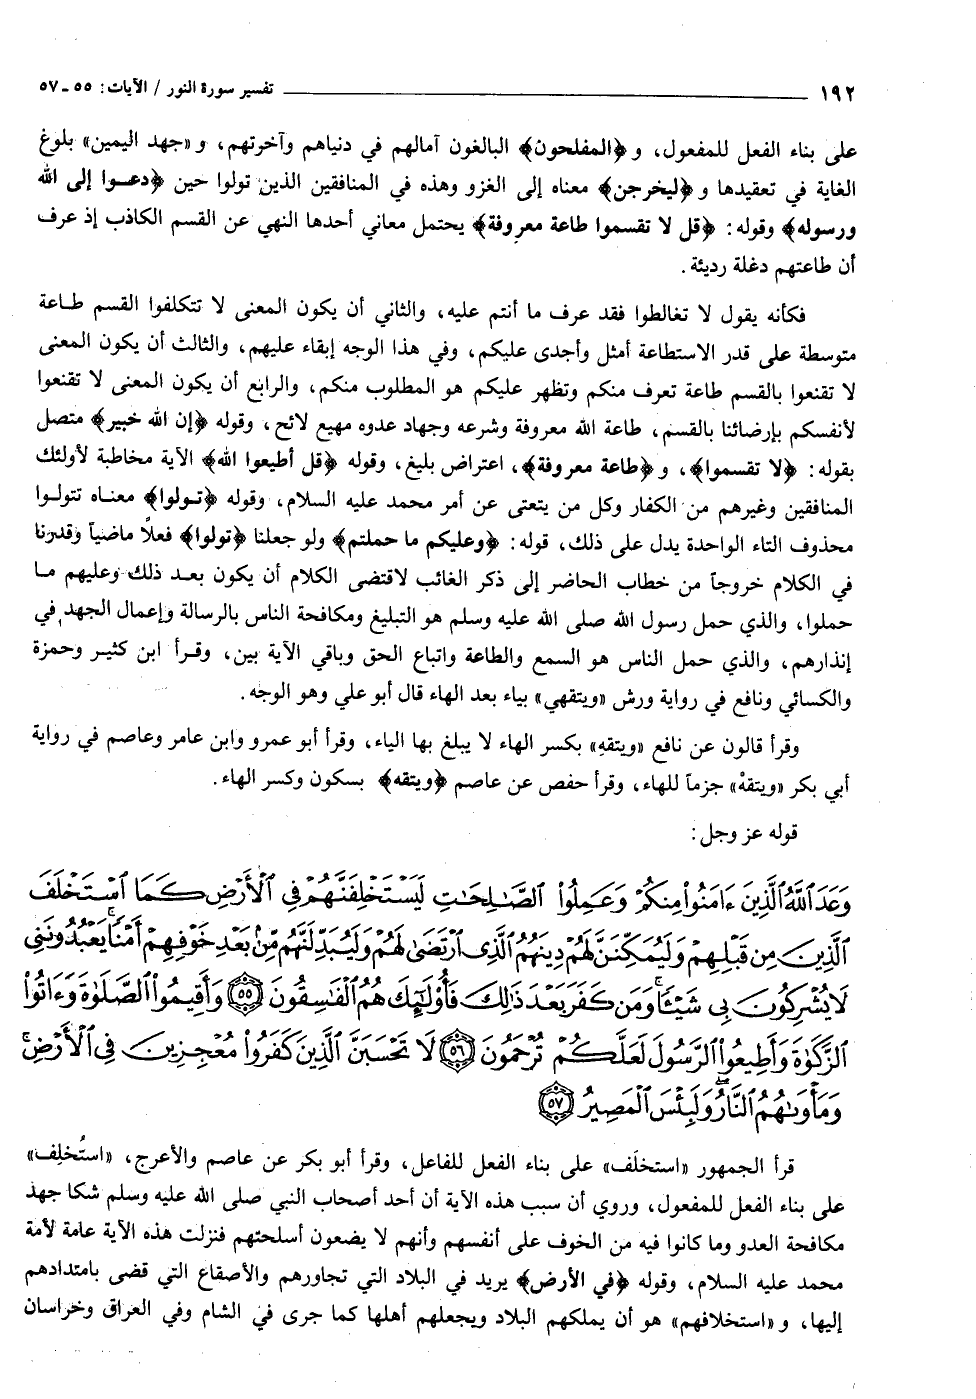 ١٩٢ ــــــ تفسير سورة النور / الآيات: ٥٥ ـ ٥٧
على بناء الفعل للمفعول، و ﴿المفلحون﴾ البالغون آمالهم في دنياهم وآخرتهم، و «جهد اليمين» بلوغ
الغاية في تعقيدها و ﴿ليخرجن﴾ معناه إلى الغزو وهذه في المنافقين الذين تولوا حين ﴿دعـوا إلى الله
ورسوله﴾ وقوله: ﴿قل لا تقسموا طاعة معروفة﴾ يحتمل معاني أحدها النهي عن القسم الكاذب إذ عرف
أن طاعتهم دغلة رديئة.
فكأنه يقول لا تغالطوا فقد عرف ما أنتم عليه، والثاني أن يكون المعنى لا تتكلفوا القسم طـاعة
متوسطة على قدر الاستطاعة أمثل وأجدى عليكم، وفي هذا الوجه إبقاء عليهم، والثالث أن يكون المعنى
لا تقنعوا بالقسم طاعة تعرف منكم وتظهر عليكم هو المطلوب منكم، والرابع أن يكون المعنى لا تقنعوا
لأنفسكم بإرضائنا بالقسم، طاعة الله معروفة وشرعه وجهاد عدوه مهيع لائح، وقوله ﴿إن الله خبير﴾ متصل
بقوله: ﴿لا تقسموا﴾، و ﴿طاعة معروفة﴾، اعتراض بليغ، وقوله ﴿قل أطيعوا الله﴾ الآية مخاطبة لأولئك
المنافقين وغيرهم من الكفار وكل من يتعتى عن أمر محمد عليه السلام، وقوله ﴿تـولوا﴾ معنـاه تتولـوا
محذوف التاء الواحدة يدل على ذلك، قوله: ﴿وعليكم ما حملتم﴾ ولو جعلنا ﴿تولوا﴾ فعلاً ماضياً وقدرنا
في الكلام خروجاً من خطاب الحاضر إلى ذكر الغائب لاقتضى الكلام أن يكون بعـد ذلك وعليهم مـا
حملوا، والذي حمل رسول الله صلى الله عليه وسلم هو التبليغ ومكافحة الناس بالرسالة وإعمال الجهد في
إنذارهم، والذي حمل الناس هو السمع والطاعة واتباع الحق وباقي الآية بين، وقـرأ ابن كثيـر وحمزة
والكسائي ونافع في رواية ورش «ويتقهي» بياء بعد الهاء قال أبو علي وهو الوجه.
وقرأ قالون عن نافع «ويتقهِ» بكسر الهاء لا يبلغ بها الياء، وقرأ أبو عمرو وابن عامر وعاصم في رواية
أبي بكر «ويتقهْ» جزماً للهاء، وقرأ حفص عن عاصم ﴿ويتقه﴾ بسكون وكسر الهاء.
قوله عز وجل:
وَعَدَ ٱللَّهُ ٱلَّذِينَ ءَامَنُوا۟ مِنكُمْ وَعَمِلُوا۟ ٱلصَّـٰلِحَـٰتِ لَيَسْتَخْلِفَنَّهُمْ فِى ٱلْأَرْضِ كَمَا ٱسْتَخْلَفَ
ٱلَّذِينَ مِن قَبْلِهِمْ وَلَيُمَكِّنَنَّ لَهُمْ دِينَهُمُ ٱلَّذِى ٱرْتَضَىٰ لَهُمْ وَلَيُبَدِّلَنَّهُم مِّنۢ بَعْدِ خَوْفِهِمْ أَمْنًا ۚ يَعْبُدُونَنِى
لَا يُشْرِكُونَ بِى شَيْـًٔا ۚ وَمَن كَفَرَ بَعْدَ ذَٰلِكَ فَأُو۟لَـٰٓئِكَ هُمُ ٱلْفَـٰسِقُونَ ﴿٥٥﴾ وَأَقِيمُوا۟ ٱلصَّلَوٰةَ وَءَاتُوا۟
ٱلزَّكَوٰةَ وَأَطِيعُوا۟ ٱلرَّسُولَ لَعَلَّكُمْ تُرْحَمُونَ ﴿٥٦﴾ لَا تَحْسَبَنَّ ٱلَّذِينَ كَفَرُوا۟ مُعْجِزِينَ فِى ٱلْأَرْضِ ۚ
وَمَأْوَىٰهُمُ ٱلنَّارُ ۖ وَلَبِئْسَ ٱلْمَصِيرُ ﴿٥٧﴾
قرأ الجمهور «استخلَف» على بناء الفعل للفاعل، وقرأ أبو بكر عن عاصم والأعرج، «استُخلِف»
على بناء الفعل للمفعول، وروي أن سبب هذه الآية أن أحد أصحاب النبي صلى الله عليه وسلم شكا جهد
مكافحة العدو وما كانوا فيه من الخوف على أنفسهم وأنهم لا يضعون أسلحتهم فنزلت هذه الآية عامة لأمة
محمد عليه السلام، وقوله ﴿في الأرض﴾ يريد في البلاد التي تجاورهم والأصقاع التي قضى بامتدادهم
إليها، و «استخلافهم» هو أن يملكهم البلاد ويجعلهم أهلها كما جرى في الشام وفي العراق وخراسان